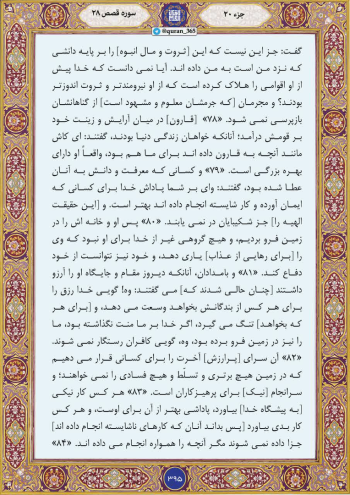 جزء ۲۰
سوره قصص ۲۸
@quran_365
گفت: جز این نیست که این [ثروت و مال انبوه] را بر پایه دانشی
که نزد من است به من داده اند. آیا نمی دانست که خدا پیش
از او اقوامی را هلاک کرده است که از او نیرومندتر و ثروت اندوزتر
بودند؟ و مجرمان [که جرمشان معلوم و مشهود است] از گناهانشان
بازپرسی نمی شود. «۷۸» [قارون] در میان آرایش و زینت خود
بر قومش درآمد؛ آنانکه خواهان زندگی دنیا بودند، گفتند: ای کاش
مانند آنچه به قارون داده اند برای ما هم بود، واقعاً او دارای
بهره بزرگی است. «۷۹» و کسانی که معرفت و دانش به آنان
عطا شده بود، گفتند: وای بر شما پاداش خدا برای کسانی که
ایمان آورده و کار شایسته انجام داده اند بهتر است. و [این حقیقت
الهیه را] جز شکیبایان در نمی یابند. «۸۰» پس او و خانه اش را در
زمین فرو بردیم، و هیچ گروهی غیر از خدا برای او نبود که وی
را [برای رهایی از عذاب] یاری دهد، و خود نیز نتوانست از خود
دفاع کند. «۸۱» و بامدادان، آنانکه دیروز مقام و جایگاه او را آرزو
داشتند [چنان حالی شدند که] می گفتند: وه! گویی خدا رزق را
برای هر کس از بندگانش بخواهد وسعت می دهد، و [برای هر
که بخواهد] تنگ می گیرد، اگر خدا بر ما منت نگذاشته بود، ما
را نیز در زمین فرو برده بود، وه، گویی کافران رستگار نمی شوند.
«۸۲» آن سرای [پرارزش] آخرت را برای کسانی قرار می دهیم
که در زمین هیچ برتری و تسلّط و هیچ فسادی را نمی خواهند؛ و
سرانجام [نیک] برای پرهیزکاران است. «۸۳» هر کس کار نیکی
[به پیشگاه خدا] بیاورد، پاداشی بهتر از آن برای اوست، و هر کس
کار بدی بیاورد [پس بداند آنان که کارهای ناشایسته انجام داده اند]
جزا داده نمی شوند مگر آنچه را همواره انجام می داده اند. «۸۴»
۳۹۵